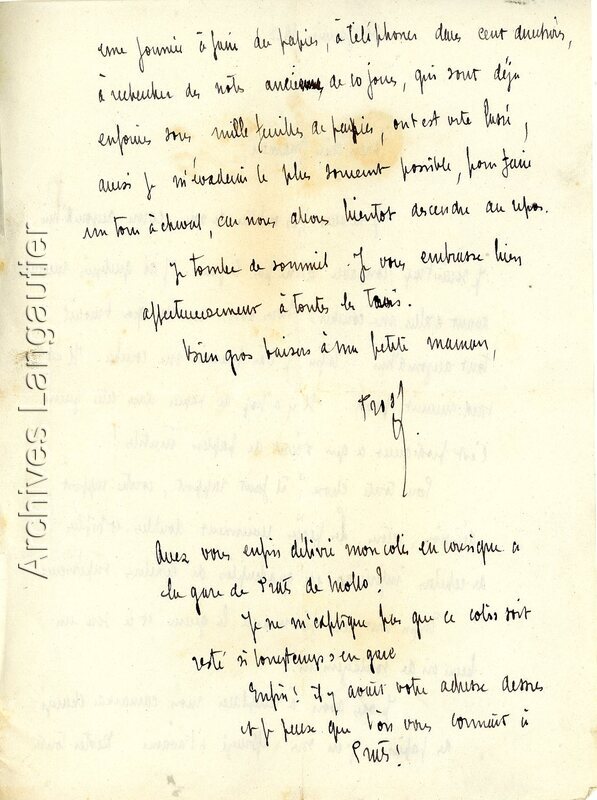 une journée à faire du papier, à téléphoner dans cent directions,
à rechercher des nots anciennes de 10 jours, qui sont déjà
enfouies sous mille feuilles de papier, on est vite lassé,
aussi je m'évaderai le plus souvent possible, pour faire
un tour à cheval, car nous allons bientot descendre au repos.
Je tombe de sommeil. Je vous embrasse bien
affectueusement à toutes les trois.
Bien gros baisers à ma petite maman,
Avez vous enfin délivré mon colis en consigne à
la gare de Prats de Mollo?
Je ne m'explique pas que ce colis soit
resté si longtemps en gare
Enfin! il y avait votre adresse dessus
et je pense que l'on vous connait à
Prats!
Archives Langautier